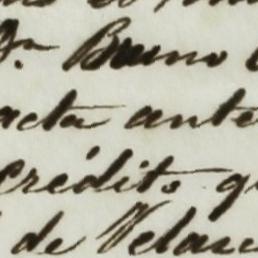 Dn Bruno
acta ante
crédito
de Velasc